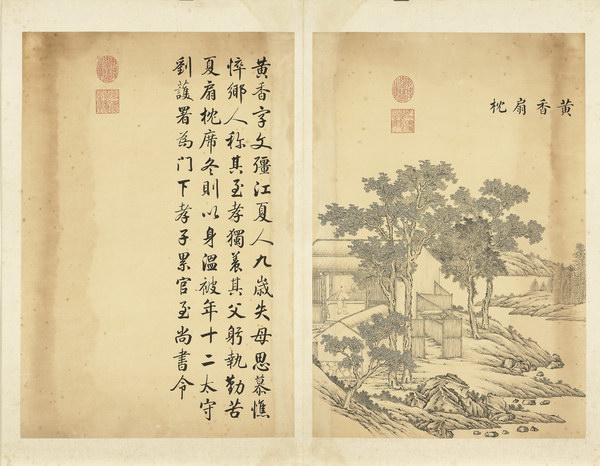 黃香扇枕
黃香字文彊江夏人九歲失母思慕憔
悴鄉人称其至孝獨養其父躬執勤苦
夏扇枕席冬則以身溫被年十二太守
劉護署為門下孝子累官至尚書令